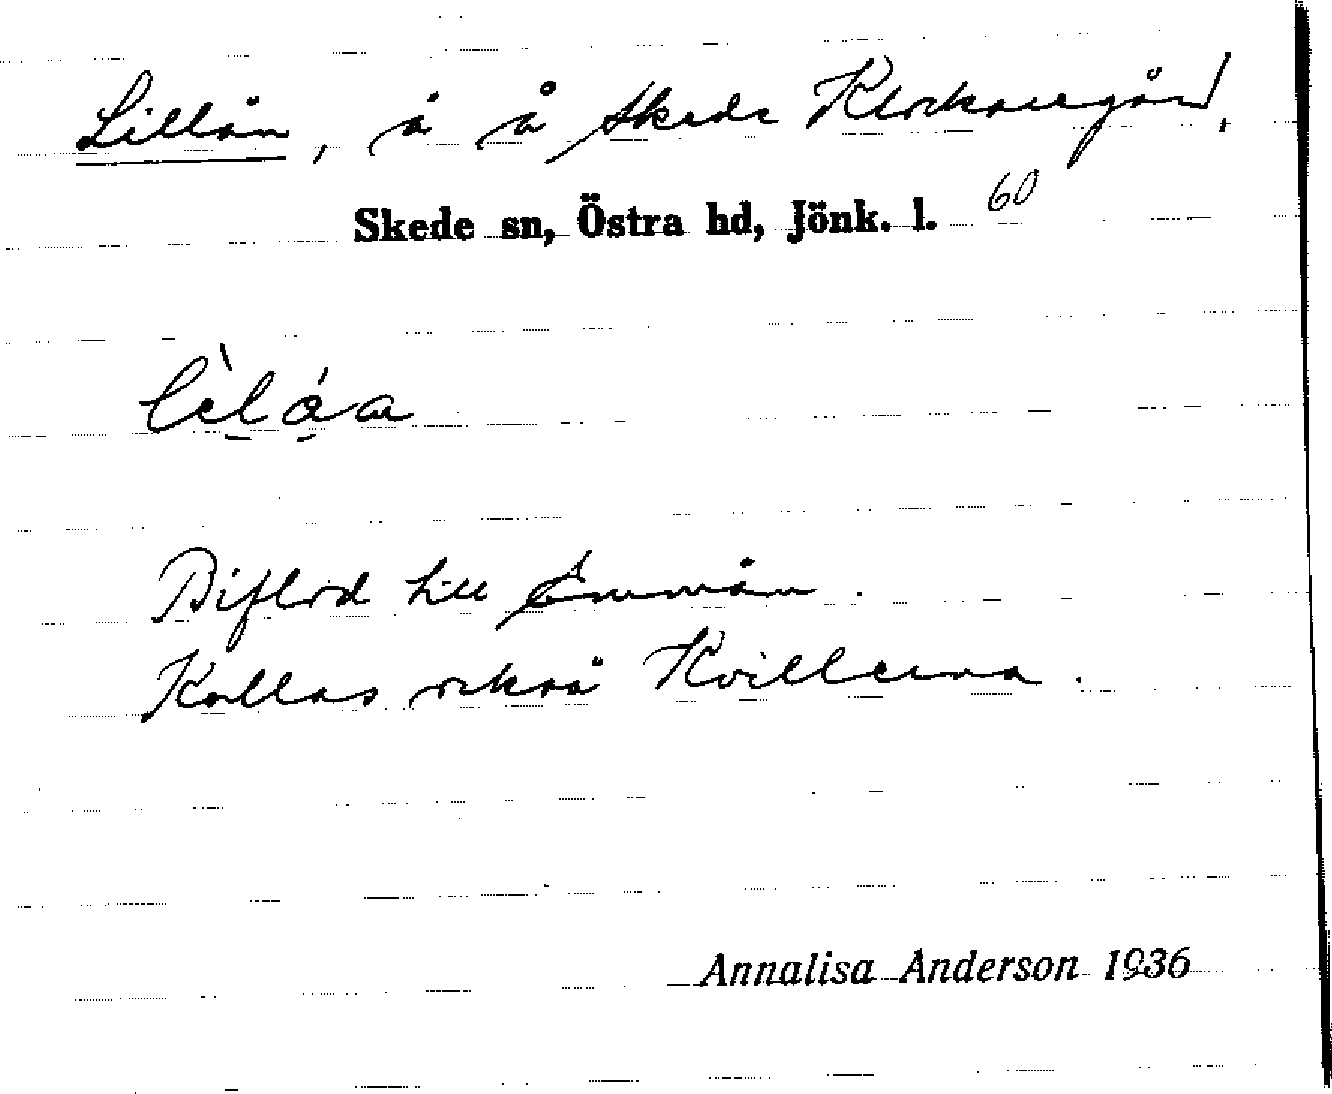 Lillån, å å Skede Klockaregård,
Skede sn, Östra hd, Jönk. l. 60
lìlåa
Biflod till Emmån.
Kallas också Kvillerna.
Annalisa Anderson 1936